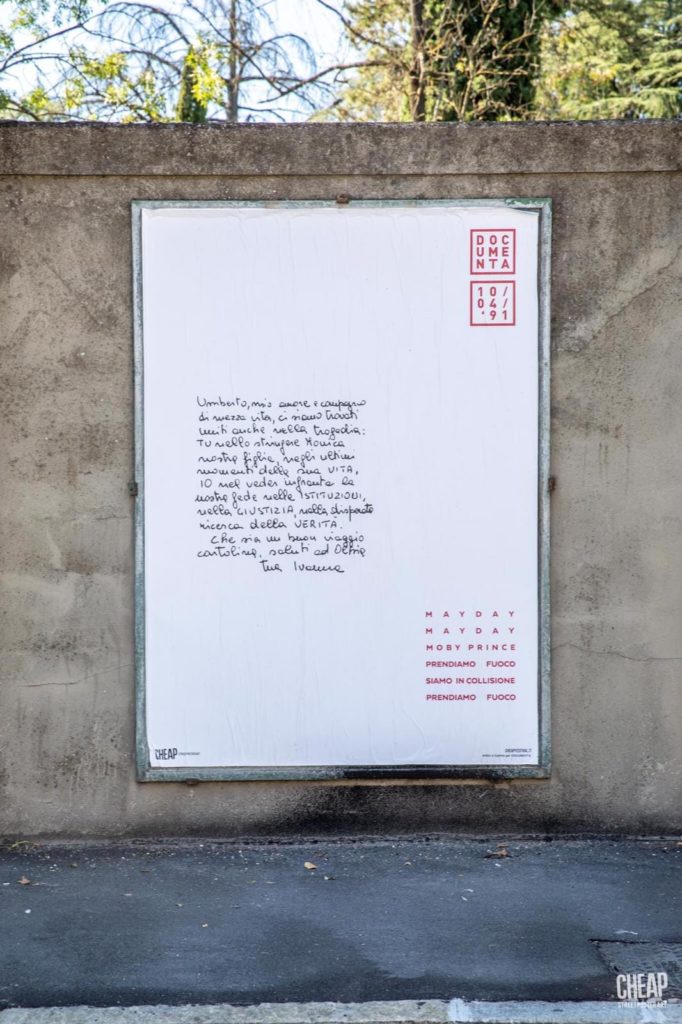 DOC
UMEN
NTA
10/
04/
'91
Umberto, mio amore e compagno
di mezza vita, ci siamo trovati
uniti anche nella tragedia:
TU nello stringere Monica
nostra figlia, negli ultimi
momenti della sua VITA,
IO nel veder infranta la
nostra fede nelle ISTITUZIONI,
nella GIUSTIZIA, nella disperata
ricerca della VERITÀ.
Che sia un buon viaggio
cartolina, saluti ad Olbia
tua Ivanna
MAYDAY
MAYDAY
MOBY PRINCE
PRENDIAMO FUOCO
SIAMO IN COLLISIONE
PRENDIAMO FUOCO
CHEAP
CHEAPFESTIVAL.IT
CHEAP
STREET POSTER ART